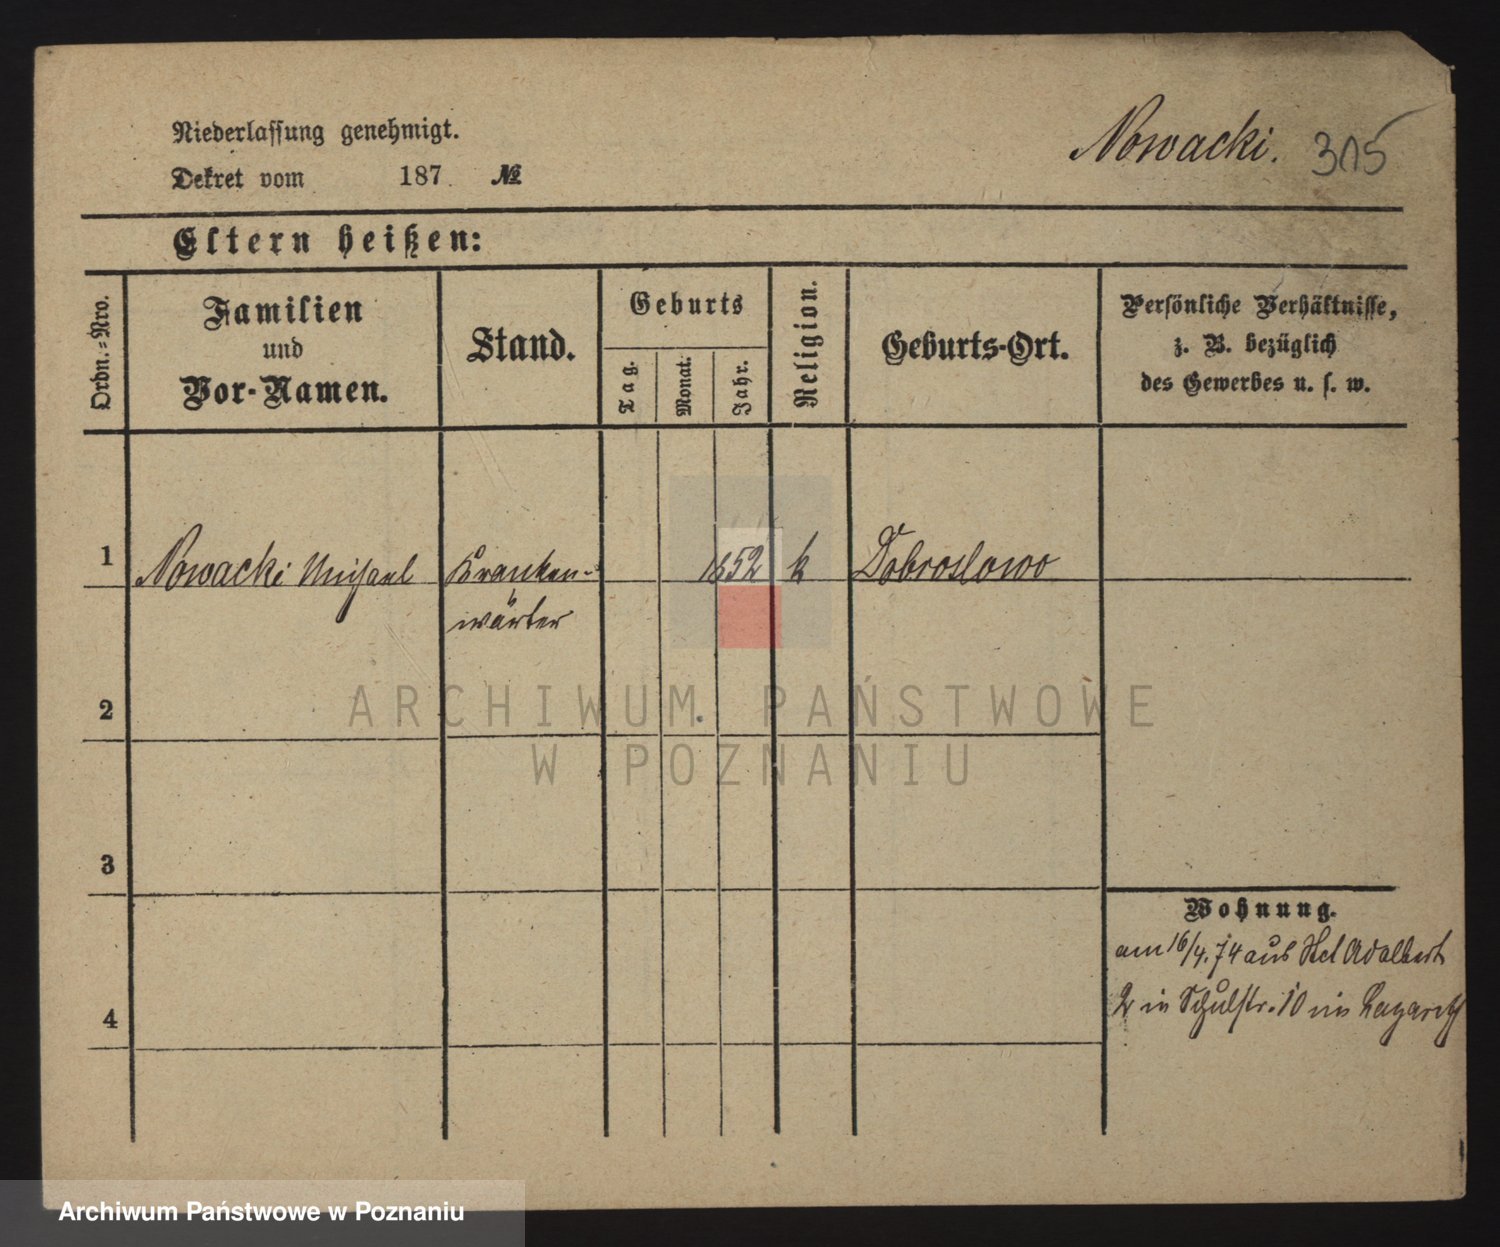 Niederlassung genehmigt.
Dekret vom 187 №
Nowacki. 315
Eltern heißen:
Ordn.-Nro.
Familien
und
Vor-Namen.
Stand.
Geburts
Tag.
Monat.
Jahr.
Religion.
Geburts-Ort.
Persönliche Verhältnisse,
z. B. bezüglich
des Gewerbes u. s. w.
1 Nowacki Michael Kranken- 1852 k Dobroslowo
wärter
2
ARCHIWUM PAŃSTWOWE
W POZNANIU
3
Wohnung.
am 16/4.74 aus Sct Adalbert
2 in Schulstr. 10 im Lazareth
4
Archiwum Państwowe w Poznaniu